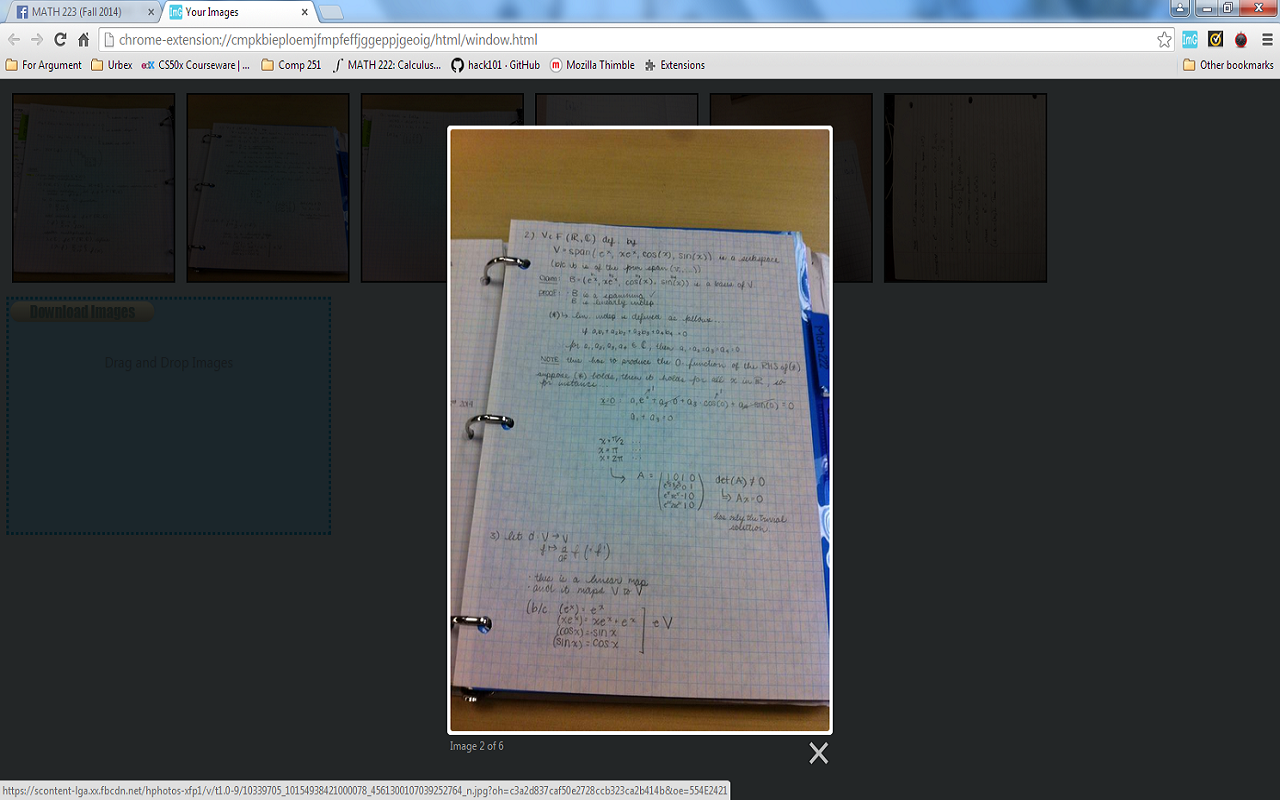 MATH 223 (Fall 2014)
Your Images
chrome-extension://cmpkbieploemjfmpfeffjggeppjgeoig/html/window.html
For Argument
Urbex
CS50x Courseware | ...
Comp 251
MATH 222: Calculus...
hack101 · GitHub
Mozilla Thimble
Extensions
Other bookmarks
Download Images
Drag and Drop Images
2) V ⊂ F(ℝ, ℂ) def by
V = span(e^x, xe^x, cos(x), sin(x)) is a subspace
(b/c it is of the form span(x, ...))
CLAIM: B = (e^x, xe^x, cos(x), sin(x)) is a basis of V.
PROOF: · B is a spanning ✓
B is linearly indep
(*) ↳ lin indep is defined as follows...
if a₁b₁ + a₂b₂ + a₃b₃ + a₄b₄ = 0
for a₁, a₂, a₃, a₄ ∈ ℂ, then a₁ = a₂ = a₃ = a₄ = 0
NOTE this has to produce the 0 function of the RHS of (*)
suppose (*) holds, then it holds for all x in ℝ, so
for instance
x=0 : a₁e^x + a₂·0 + a₃·cos(0) + a₄·sin(0) = 0
a₁ + a₃ = 0
x = π/2 ...
x = π ...
x = 2π ...
↳ A = 1 0 1 0
det(A) ≠ 0
↳ Ax=0
has only the trivial
solution
3) let d: V → V
f ↦ f (= f')
· this is a linear map
· and it maps V to V
(b/c (e^x) = e^x
(xe^x) = xe^x + e^x
(cosx) = -sinx
(sinx) = cosx
∈ V
Math 222
Image 2 of 6
https://scontent-lga.xx.fbcdn.net/hphotos-xfp1/v/t1.0-9/10339705_10154938421000078_4561300107039252764_n.jpg?oh=c3a2d837caf50e2728ccb323ca2b414b&oe=554E2421